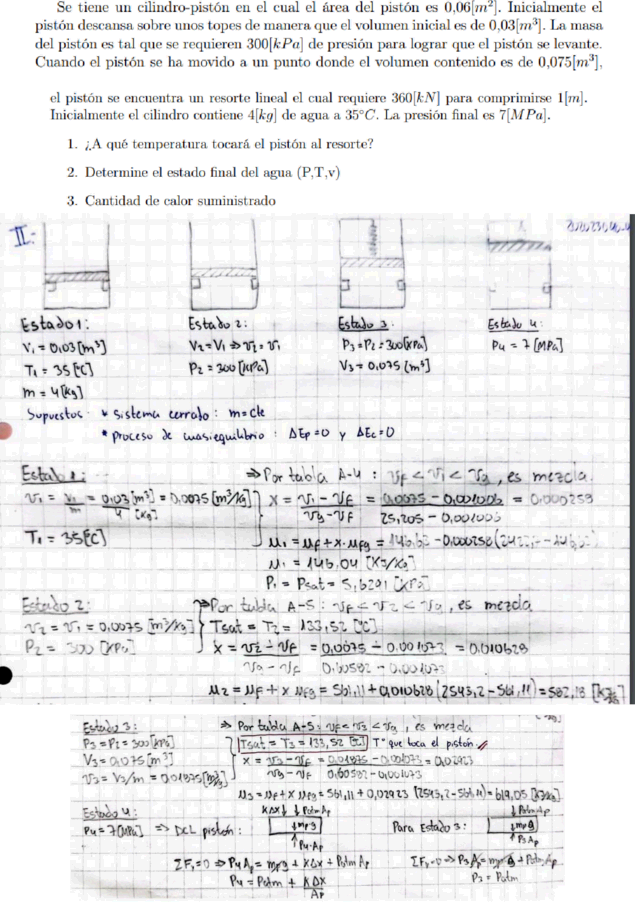 Se tiene un cilindro-pistón en el cual el área del pistón es 0,06[m²]. Inicialmente el
pistón descansa sobre unos topes de manera que el volumen inicial es de 0,03[m³]. La masa
del pistón es tal que se requieren 300[kPa] de presión para lograr que el pistón se levante.
Cuando el pistón se ha movido a un punto donde el volumen contenido es de 0,075[m³],
el pistón se encuentra un resorte lineal el cual requiere 360[kN] para comprimirse 1[m].
Inicialmente el cilindro contiene 4[kg] de agua a 35°C. La presión final es 7[MPa].
1. ¿A qué temperatura tocará el pistón al resorte?
2. Determine el estado final del agua (P,T,v)
3. Cantidad de calor suministrado
II:
Estado 1: Estado 2: Estado 3: Estado 4:
V₁ = 0,03 [m³] V₂ = V₁ ⇒ v₂ = v₁ P₃ = P₂ = 300 [kPa] P₄ = 7 [MPa]
T₁ = 35 [°C] P₂ = 300 [kPa] V₃ = 0,075 [m³]
m = 4 [kg]
Supuestos: * sistema cerrado: m = cte
* proceso de cuasiequilibrio: ΔEp = 0 y ΔEc = 0
Estado 1: ⇒ Por tabla A-4: vf < v₁ < vg, es mezcla.
v₁ = V₁/m = 0,03 [m³]/4 [kg] = 0,0075 [m³/kg] x = v₁ - vf / vg - vf = 0,0075 - 0,001006 / 25,205 - 0,001006 = 0,000258
T₁ = 35 [°C] u₁ = uf + x · ufg =
u₁ = 146,04 [kJ/kg]
P₁ = Psat = 5,6291 [kPa]
Estado 2: ⇒ Por tabla A-5: vf < v₂ < vg, es mezcla
v₂ = v₁ = 0,0075 [m³/kg] Tsat = T₂ = 133,52 [°C]
P₂ = 300 [kPa] x = v₂ - vf / vg - vf = 0,0075 - 0,001073 / 0,60582 - 0,001073 = 0,010628
u₂ = uf + x ufg = 561,11 + 0,010628 (2543,2 - 561,11) = 582,18 [kJ/kg]
Estado 3: ⇒ Por tabla A-5: vf < v₃ < vg, es mezcla
P₃ = P₂ = 300 [kPa] Tsat = T₃ = 133,52 [°C] T° que toca el piston
V₃ = 0,075 [m³] x = v₃ - vf / vg - vf = 0,01875 - 0,001073 / 0,60582 - 0,001073 = 0,02923
v₃ = V₃/m = 0,01875 [m³/kg] u₃ = uf + x ufg = 561,11 + 0,02923 (2543,2 - 561,11) = 619,05 [kJ/kg]
Estado 4: KΔx ↓ ↓ Patm Ap ↓ Patm Ap
P₄ = 7 [MPa] ⇒ DCL pistón: ↓ mpg Para Estado 3: ↓ mpg
↑ P₄·Ap ↑ P₃ Ap
ΣFy = 0 ⇒ P₄ Ap = mpg + KΔx + Patm Ap ΣFy = 0 ⇒ P₃ Ap = mpg + Patm Ap
P₄ = Patm + KΔx/Ap P₃ = Patm